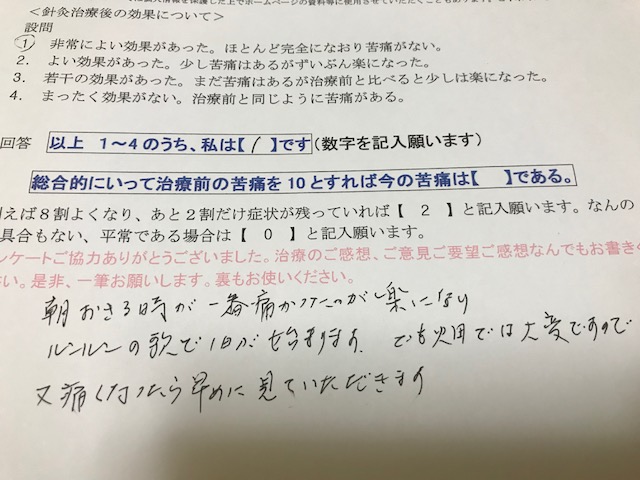 に個人情報を保護した上でホームページの資料等に使用させていただくこともあります。
<針灸治療後の効果について>
設問
1. 非常によい効果があった。ほとんど完全になおり苦痛がない。
2. よい効果があった。少し苦痛はあるがずいぶん楽になった。
3. 若干の効果があった。まだ苦痛はあるが治療前と比べると少しは楽になった。
4. まったく効果がない。治療前と同じように苦痛がある。
回答 以上 1～4のうち、私は【 1 】です(数字を記入願います)
総合的にいって治療前の苦痛を10とすれば今の苦痛は【 】である。
例えば8割よくなり、あと2割だけ症状が残っていれば【 2 】と記入願います。なんの
具合もない、平常である場合は【 0 】と記入願います。
ンケートご協力ありがとうございました。治療のご感想、ご意見ご要望ご感想なんでもお書きく
さい。是非、一筆お願いします。裏もお使いください。
朝おきる時が一番痛かったのが楽になり
ルンルンの歌で1日が始まります、でも畑では大変ですので
又痛くなったら早めに見ていただきます